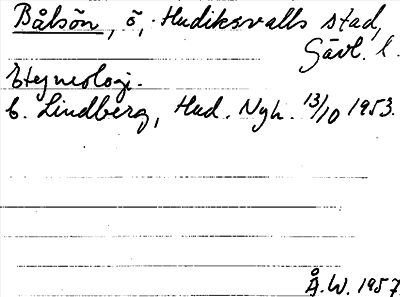 Bålsön, ö, Hudiksvalls stad,
Gävl. l.
Etymologi.
C. Lindberg, Hud. Nyh. 13/10 1953.
Å.W. 1957